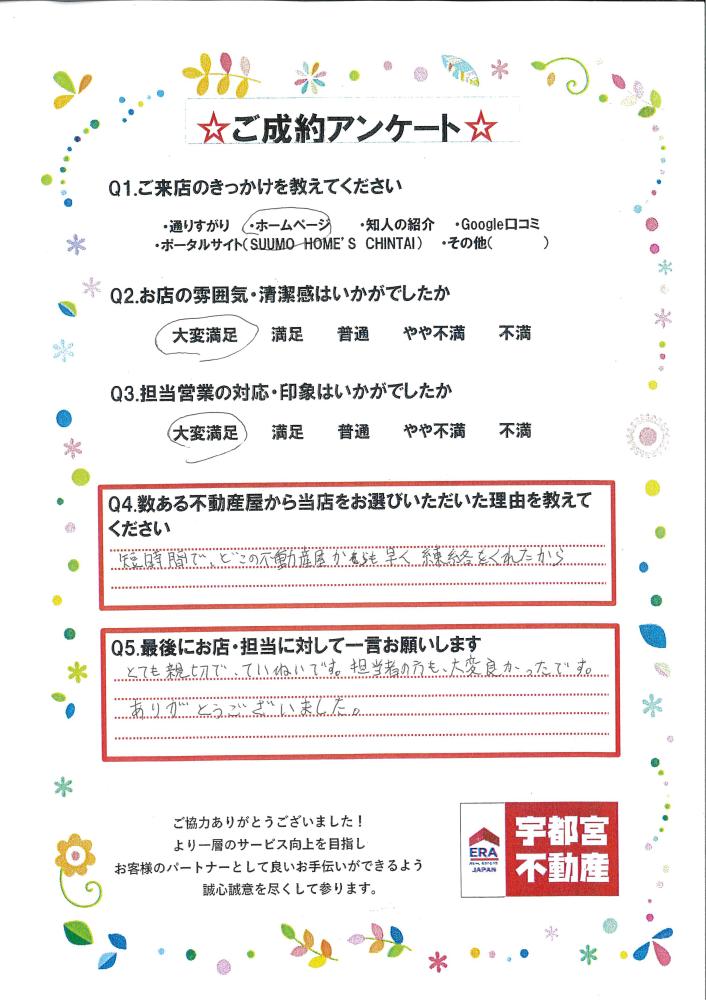 ☆ご成約アンケート☆
Q1.ご来店のきっかけを教えてください
・通りすがり ・ホームページ ・知人の紹介 ・Google口コミ
・ポータルサイト(SUUMO HOME'S CHINTAI) ・その他( )
Q2.お店の雰囲気・清潔感はいかがでしたか
大変満足 満足 普通 やや不満 不満
Q3.担当営業の対応・印象はいかがでしたか
大変満足 満足 普通 やや不満 不満
Q4.数ある不動産屋から当店をお選びいただいた理由を教えて
ください
短時間で、どこの不動産屋からも早く 練絡をくれたから
Q5.最後にお店・担当に対して一言お願いします
とても親切で、ていねいです。担当者の方も、大変良かったです。
ありがとうございました。
ご協力ありがとうございました！
より一層のサービス向上を目指し
お客様のパートナーとして良いお手伝いができるよう
誠心誠意を尽くして参ります。
ERA
JAPAN
宇都宮
不動産